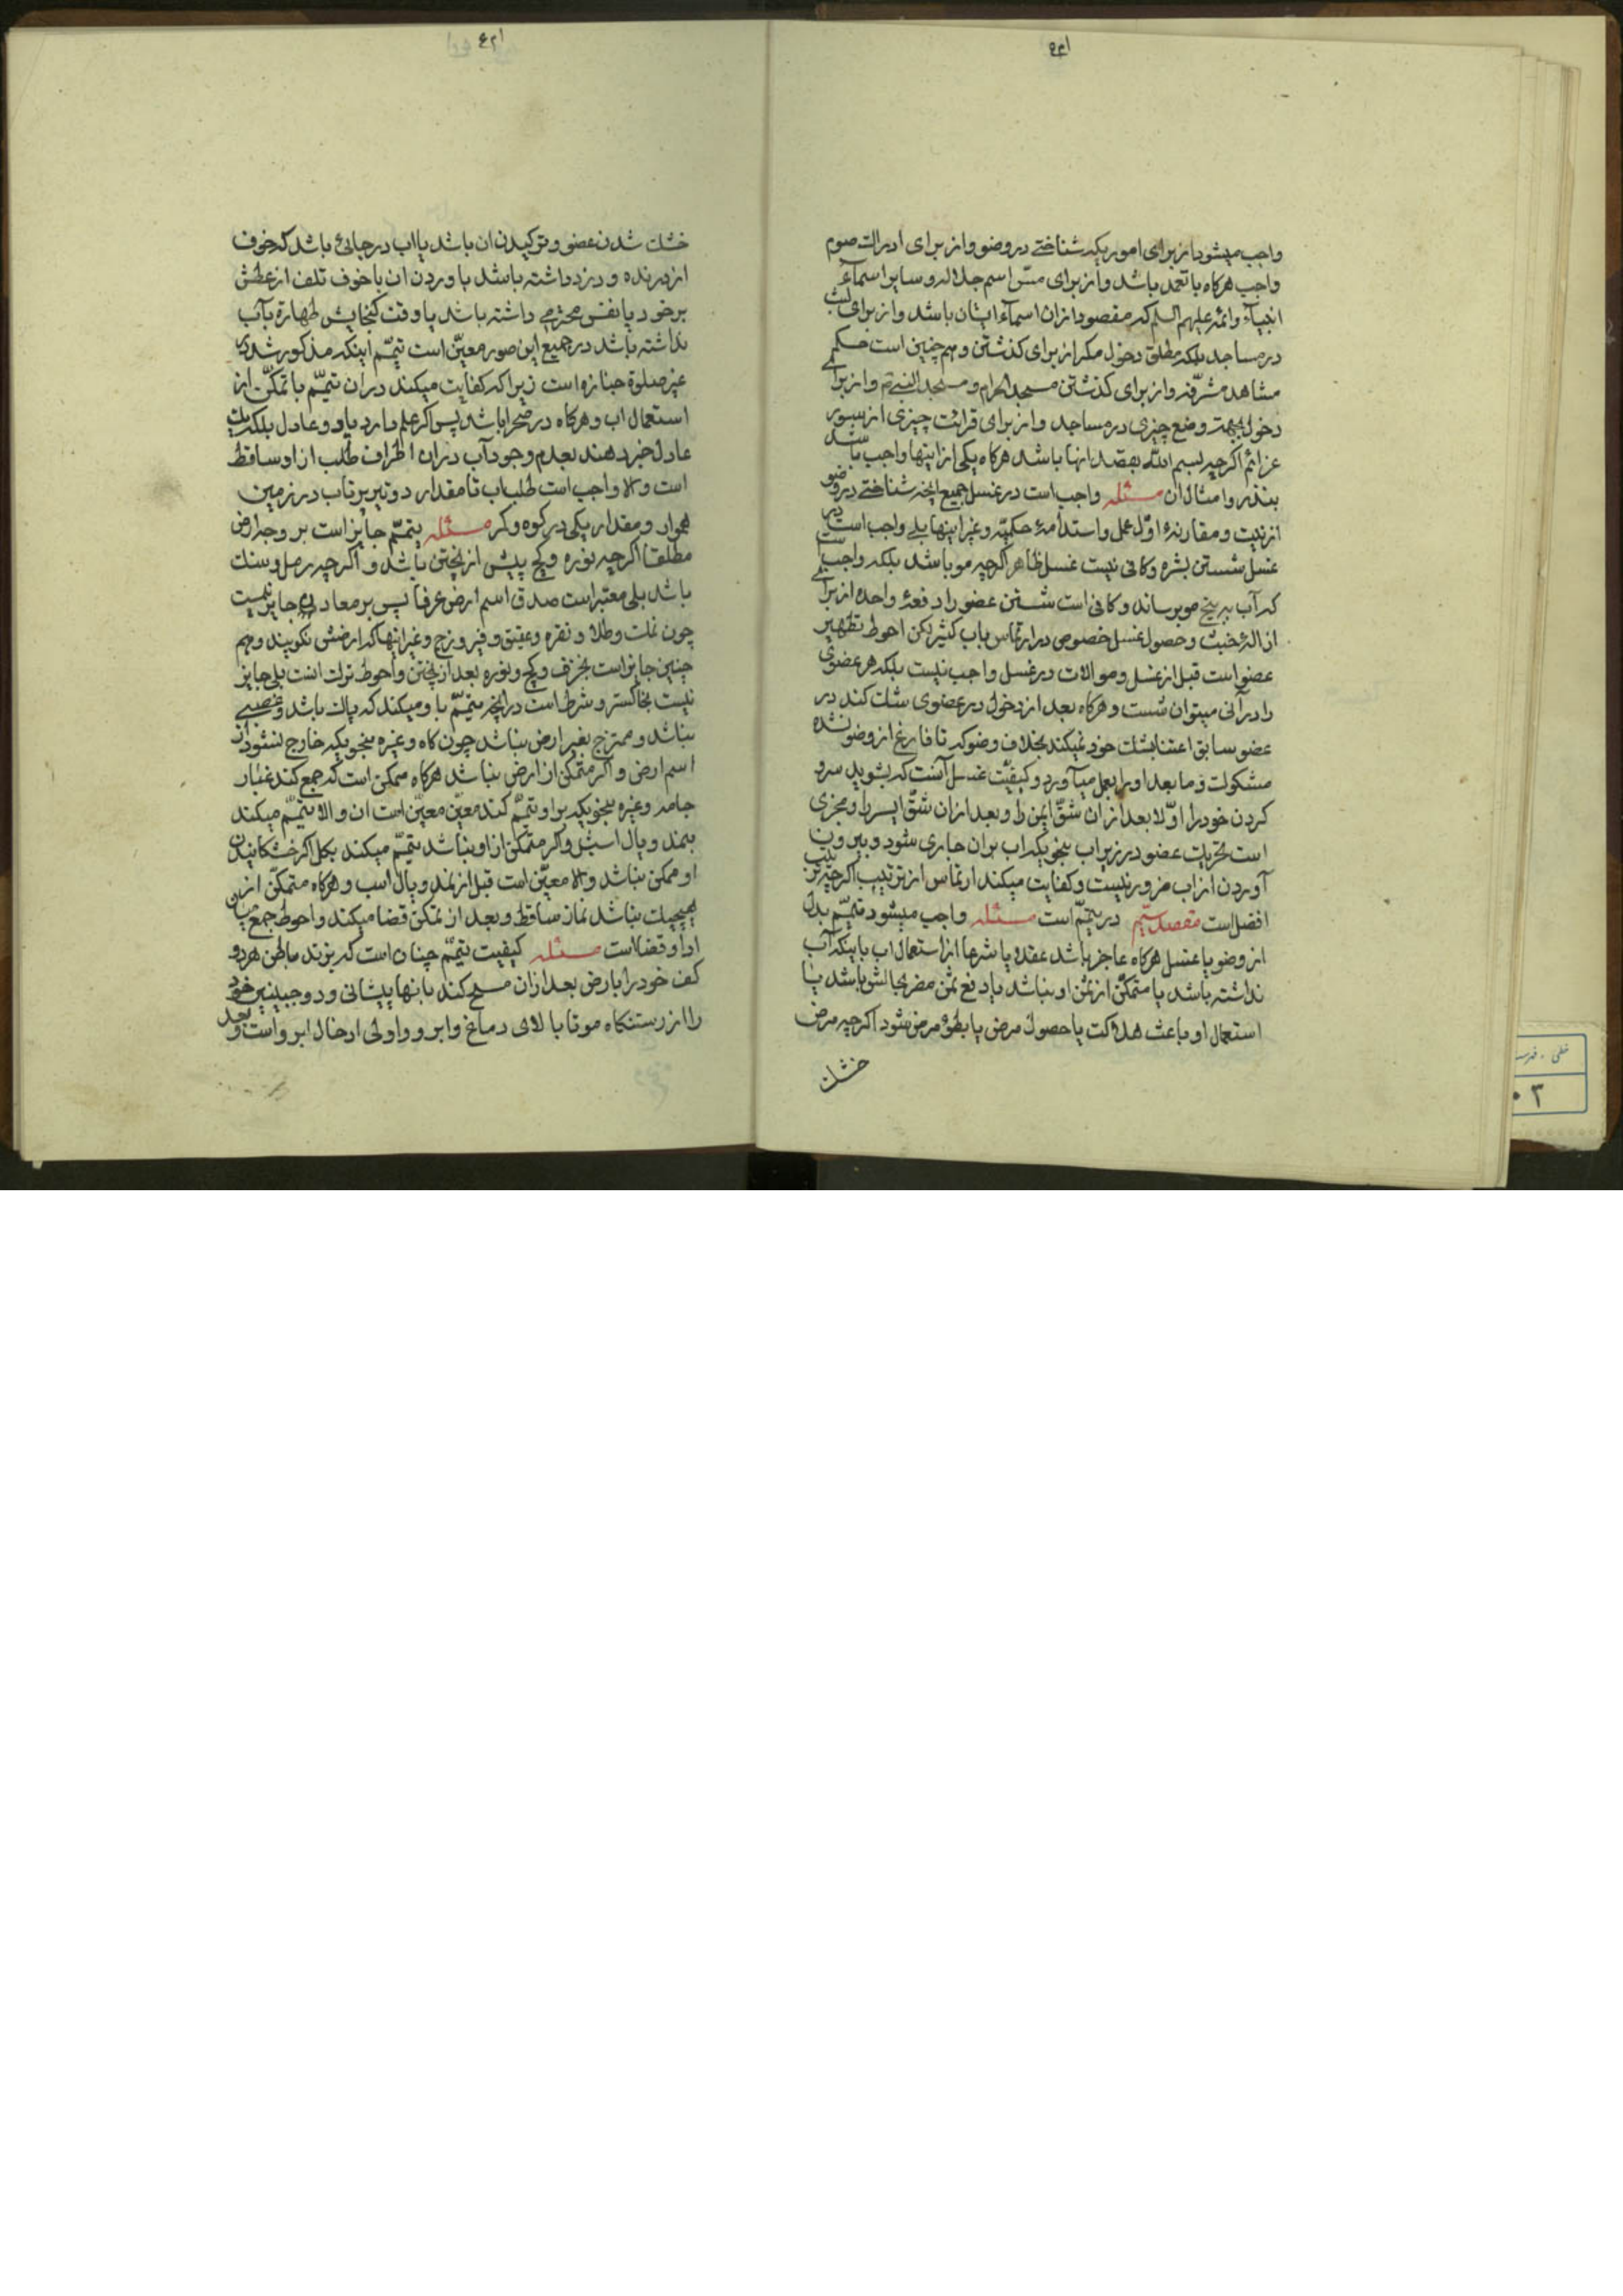 واجب میشود از برای اموریکه شناختی در وضو و از برای ادراک صوم
واجب هرکاه با تعمد باشد و از برای مسّ اسم جلاله و سایر اسماء
انبیاء وائمه علیهم السلم که مقصود ازان اسماء ایشان باشد و از برای لبث
در مساجد بلکه مطلق دخول مکر از برای کذشتن و هم چنین است حکم
مشاهد مشرّفه و از برای کذشتن مسجد الحرام و مسجد النبی و از برای
دخول بجهت وضع چیزی در مساجد و از برای قرائت چیزی از سور
عزائم اکرچه بسم الله بقصد انها باشد هرکاه یکی از اینها واجب باشد
بنذر و امثال ان مسئله واجب است در غسل جمیع انچه شناختی در وضو
از نیت و مقارنهٔ اوّل عمل و استدامهٔ حکمیّه و غیر اینها بلی واجب است در
غسل شستن بشره و کافی نیست غسل ظاهر اکرچه مو باشد بلکه واجب است
که آب به بیخ مو برساند و کافی است شستن عضو را دفعهٔ واحده از برای
ازالهٔ خبث و حصول غسل خصوص در ارتماس باب کثیر لکن احوط تطهیر
عضو است قبل از غسل و موالات در غسل واجب نیست بلکه هر عضوی
را در آنی میتوان شست و هرکاه بعد از دخول در عضوی شک کند در
عضو سابق اعتنا بشک خود نمیکند بخلاف وضو که تا فارغ از وضو نشده
مشکوک و ما بعد او را بعمل میآورد و کیفیّت غسل آنست که بشوید سر و
کردن خود را اوّلا بعد از ان شقّ ایمن را و بعد ازان شقّ ایسر را و مجزی
است تحریک عضو در زیر اب بنحویکه اب بران جاری شود و بیرون
آوردن از اب ضرور نیست و کفایت میکند ارتماس از ترتیب اکرچه ترتیب
افضل است مقصد سیّم در تیمّم است مسئله واجب میشود تیمّم بدل
از وضو یا غسل هرکاه عاجز باشد عقلا یا شرعا از استعمال اب یا اینکه آب
نداشته باشد یا متمکّن از ثمن او نباشد یا دفع ثمن مضر بحالش باشد یا
استعمال او باعث هلاکت یا حصول مرض یا بطؤ مرض شود اکرچه مرض
خشک
خشک شدن عضو و ترکیدن ان باشد یا اب در جائی باشد که خوف
از درنده و دزد داشته باشد باوردن ان یا خوف تلف از عطش
بر خود یا نفس محترمی داشته باشد یا وقت کنجایش طهارة بآب
نداشته باشد در جمیع این صور معیّن است تیمّم اینکه مذکور شد در
غیر صلوة جنازه است زیرا که کفایت میکند دران تیمّم با تمکّن از
استعمال اب و هرکاه در صحرا باشد پس اکر علم دارد یا دو عادل بلکه یک
عادل خبر دهند بعدم وجود آب دران اطراف طلب از او ساقط
است والا واجب است طلب اب تا مقدار دو تیر پرتاب در زمین
هموار و مقدار یکی در کوه و کر مسئله تیمّم جایز است بر وجه ارض
مطلقا اکرچه نوره و کچ پیش از پختن باشد و اکرچه رمل و سنک
باشد بلی معتبر است صدق اسم ارض عرفا پس بر معادن جایز نیست
چون نمک و طلا و نقره و عقیق و فیروزج و غیر اینها که ارضش نکویند و هم
چنین جایز است بخزف و کچ و نوره بعد از پختن و احوط ترک است بلی جایز
نیست بخاکستر و شرط است در انچه تیمّم با و میکند که پاک باشد و غصبی
نباشد و ممتزج بغیر ارض نباشد چون کاه و غیره بنحویکه خارج نشود از
اسم ارض و اکر متمکّن از ارض نباشد هرکاه ممکن است که جمع کند غبار
جامه و غیره بنحویکه براو تیمّم کند معیّن است ان والا تیمّم میکند
بنمد و یال اسب و اکر متمکّن از او نباشد تیمّم میکند بکل اکر خشکانیدن
او ممکن نباشد والا معیّن است قبل از نمد و یال اسب و هرکاه متمکّن از
هیچیک نباشد نماز ساقط و بعد از تمکّن قضا میکند و احوط جمع میان
ادا و قضا است مسئله کیفیت تیمّم چنان است که بزند باطن هر دو
کف خود را بارض بعد ازان مسح کند بانها پیشانی و دو جبینین خود
را از رستنکاه مو تا بالای دماغ و ابرو و اولی ادخال ابرو است و بعد